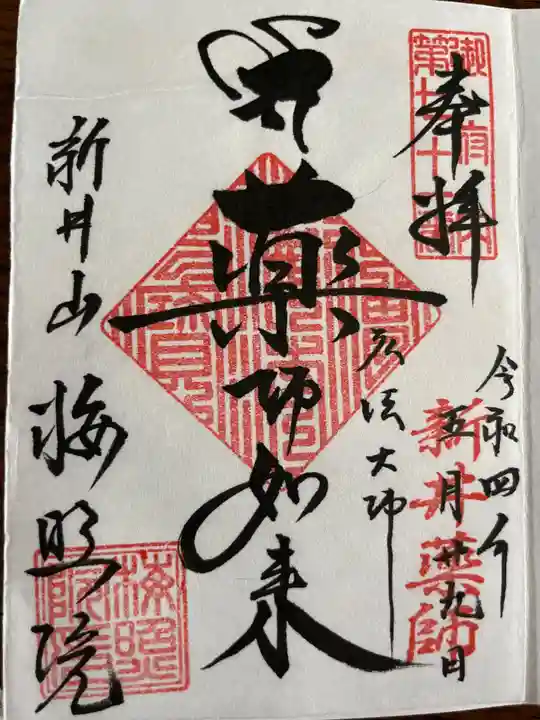 奉拝
令和四年
五月廿九日
新井薬師
薬師如来
弘法大師
新井山
梅照院